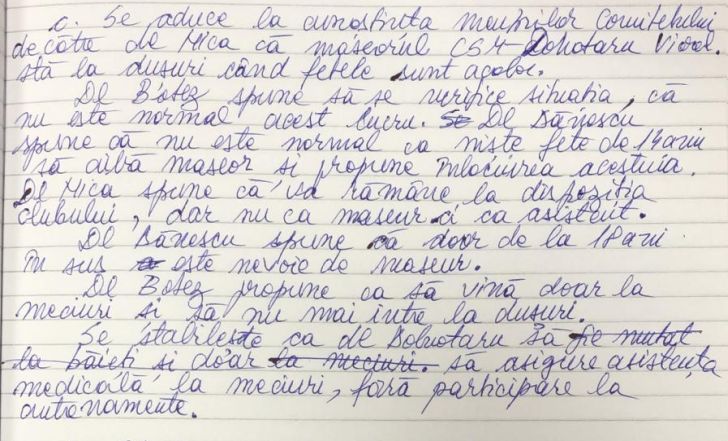 c. Se aduce la cunoștința membrilor Comitetului
de către dl Mica că maseorul CSM Dohotaru Viorel
stă la dușuri când fetele sunt acolo.
Dl Botez spune să se verifice situația, că
nu este normal acest lucru. Se Dl Bănescu
spune că nu este normal ca niște fete de 14 ani
să aibă maseor și propune înlocuirea acestuia.
Dl Mica spune că va rămâne la dispoziția
clubului, dar nu ca maseur ci ca asistent.
Dl Bănescu spune că doar de la 18 ani
în sus este nevoie de maseur.
Dl Botez propune ca să vină doar la
meciuri și să nu mai intre la dușuri.
Se stabilește ca dl Dohotaru să fie mutat
la băieți și doar la meciuri. să asigure asistența
medicală la meciuri, fără participare la
antrenamente.